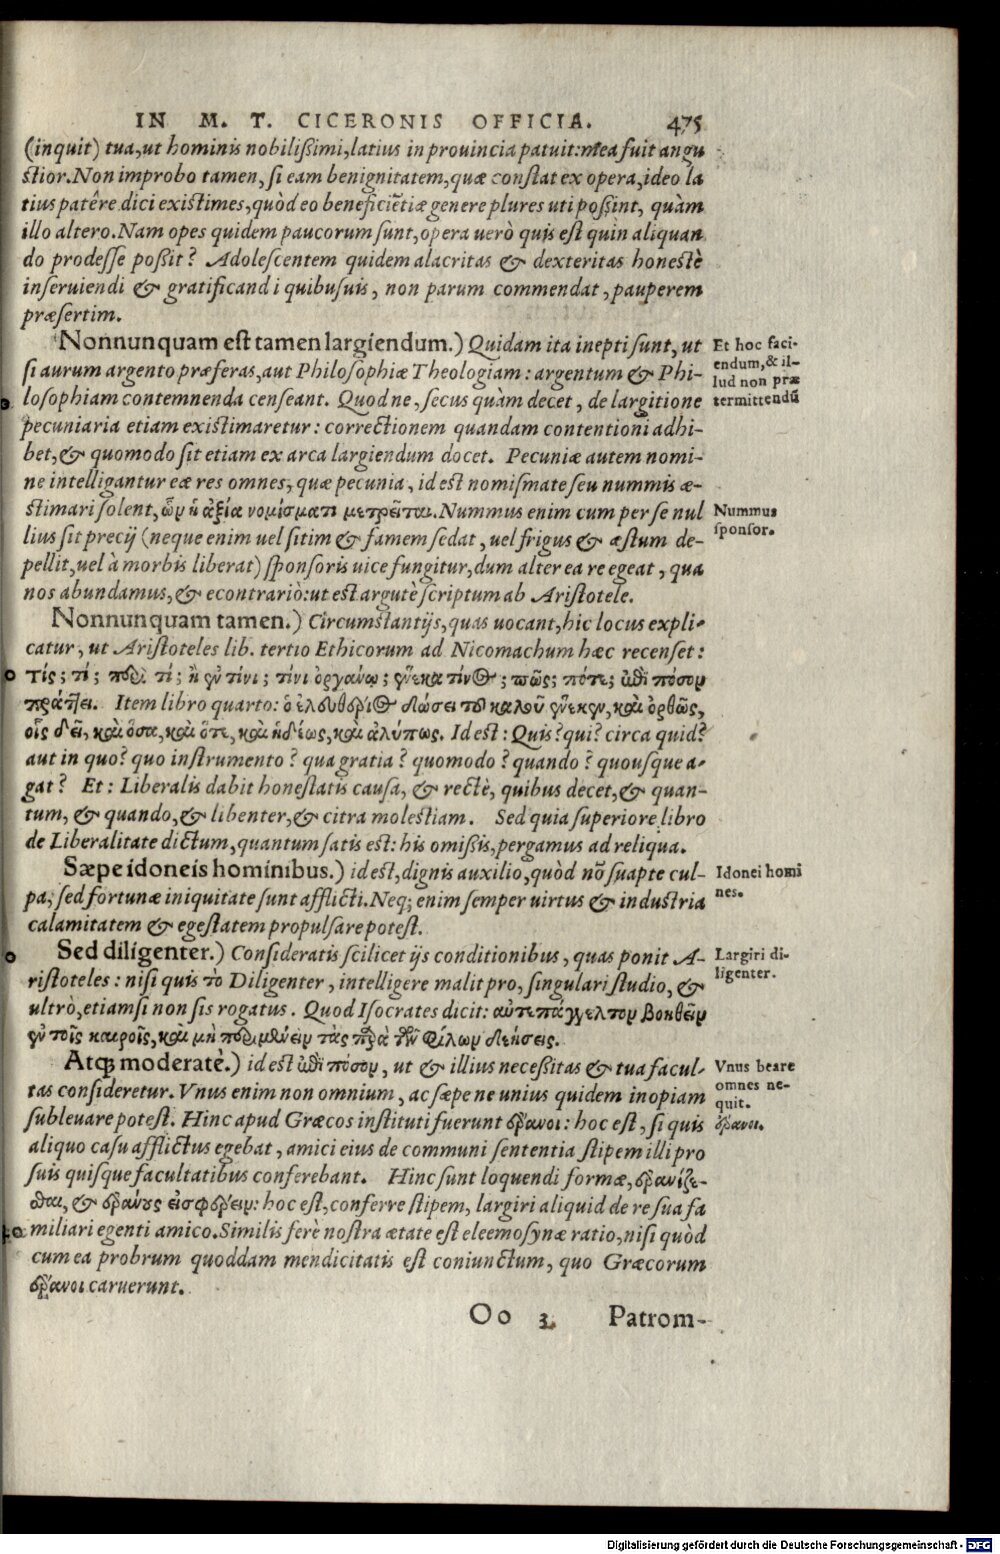 IN M. T. CICERONIS OFFICIA. 475
(inquit) tua, ut hominis nobilißimi, latius in prouincia patuit: mea fuit angu
stior. Non improbo tamen, si eam benignitatem, quæ constat ex opera, ideo la
tius patêre dici existimes, quòd eo beneficẽtiæ genere plures uti poßint, quàm
illo altero. Nam opes quidem paucorum sunt, opera uerò quis est quin aliquan
do prodesse poßit? Adolescentem quidem alacritas & dexteritas honestè
inseruiendi & gratificandi quibusuis, non parum commendat, pauperem
præsertim.
Nonnunquam est tamen largiendum.) Quidam ita inepti sunt, ut
Et hoc faci-
si aurum argento præferas, aut Philosophiæ Theologiam: argentum & Phi-
endum, & il-
lud non præ
losophiam contemnenda censeant. Quod ne, secus quàm decet, de largitione
termittendũ
pecuniaria etiam existimaretur: correctionem quandam contentioni adhi-
bet, & quomodo sit etiam ex arca largiendum docet. Pecuniæ autem nomi-
ne intelligantur eæ res omnes, quæ pecunia, id est nomismate seu nummis æ-
stimari solent, ὧν ἡ ἀξία νομίσματι μετρεῖται. Nummus enim cum per se nul
Nummus
lius sit precij (neque enim uel sitim & famem sedat, uel frigus & æstum de-
sponsor.
pellit, uel à morbis liberat) sponsoris uice fungitur, dum alter ea re egeat, qua
nos abundamus, & econtrariò: ut est argutè scriptum ab Aristotele.
Nonnunquam tamen.) Circumstantijs, quas uocant, hic locus expli-
catur, ut Aristoteles lib. tertio Ethicorum ad Nicomachum hæc recenset:
τίς; τί; περὶ τί; ἢ ἐν τίνι; τίνι ὀργάνῳ; ἕνεκα τίνος; πῶς; πότε; ἐπὶ πόσον
πράττει. Item libro quarto: ὁ ἐλευθέριος δώσει τοῦ καλοῦ ἕνεκεν, καὶ ὀρθῶς,
οἷς δεῖ, καὶ ὅσα, καὶ ὅτε, καὶ ἡδέως, καὶ ἀλύπως. Id est: Quis? qui? circa quid?
aut in quo? quo instrumento? qua gratia? quomodo? quando? quousque a-
gat? Et: Liberalis dabit honestatis causa, & rectè, quibus decet, & quan-
tum, & quando, & libenter, & citra molestiam. Sed quia superiore libro
de Liberalitate dictum, quantum satis est: his omißis, pergamus ad reliqua.
Sæpe idoneis hominibus.) id est, dignis auxilio, quòd nõ suapte cul-
Idonei homi
pa, sed fortunæ iniquitate sunt afflicti. Neq; enim semper uirtus & industria
nes.
calamitatem & egestatem propulsare potest.
Sed diligenter.) Consideratis scilicet ijs conditionibus, quas ponit A-
Largiri di-
ristoteles: nisi quis τὸ Diligenter, intelligere malit pro, singulari studio, &
ligenter.
ultrò, etiamsi non sis rogatus. Quod Isocrates dicit: αὐτεπάγγελτον βοηθεῖν
ἐν τοῖς καιροῖς, καὶ μὴ περιμένειν τὰς παρὰ τῶν φίλων δεήσεις.
Atq; moderatè.) id est ἐπὶ πόσον, ut & illius neceßitas & tua facul-
Vnus beare
tas consideretur. Vnus enim non omnium, ac sæpe ne unius quidem inopiam
omnes ne-
quit.
subleuare potest. Hinc apud Græcos instituti fuerunt ἔρανοι: hoc est, si quis
ἔρανοι.
aliquo casu afflictus egebat, amici eius de communi sententia stipem illi pro
suis quisque facultatibus conferebant. Hinc sunt loquendi formæ, ἐρανίζε-
σθαι, & ἐράνους εἰσφέρειν: hoc est, conferre stipem, largiri aliquid de re sua fa
miliari egenti amico. Similis ferè nostra ætate est eleemosynæ ratio, nisi quòd
cum ea probrum quoddam mendicitatis est coniunctum, quo Græcorum
ἔρανοι caruerunt.
Oo 3 Patrom-
Digitalisierung gefördert durch die Deutsche Forschungsgemeinschaft - DFG